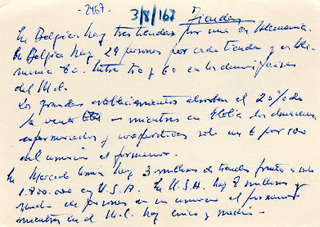 -2467.
3/8/167 Tiendas
En Bélgica hay tres tiendas por una en Alemania.
En Bélgica hay 29 personas por cada tienda y en Ale-
mania 60. Entre 40 y 60 en los demás países
del M.C.
Los grandes establecimientos absorben el 20% de
la venta mientras en Italia los almacenes,
supermercados y cooperativas solo un 6 por 100
del comercio al por menor.
En Mercado Común hay 3 millones de tiendas frente a solo
1.800.000 en U.S.A. En U.S.A. hay 8 millones y
de personas en un comercio al por menor
mientras en el M.C. hay cinco y medio.-